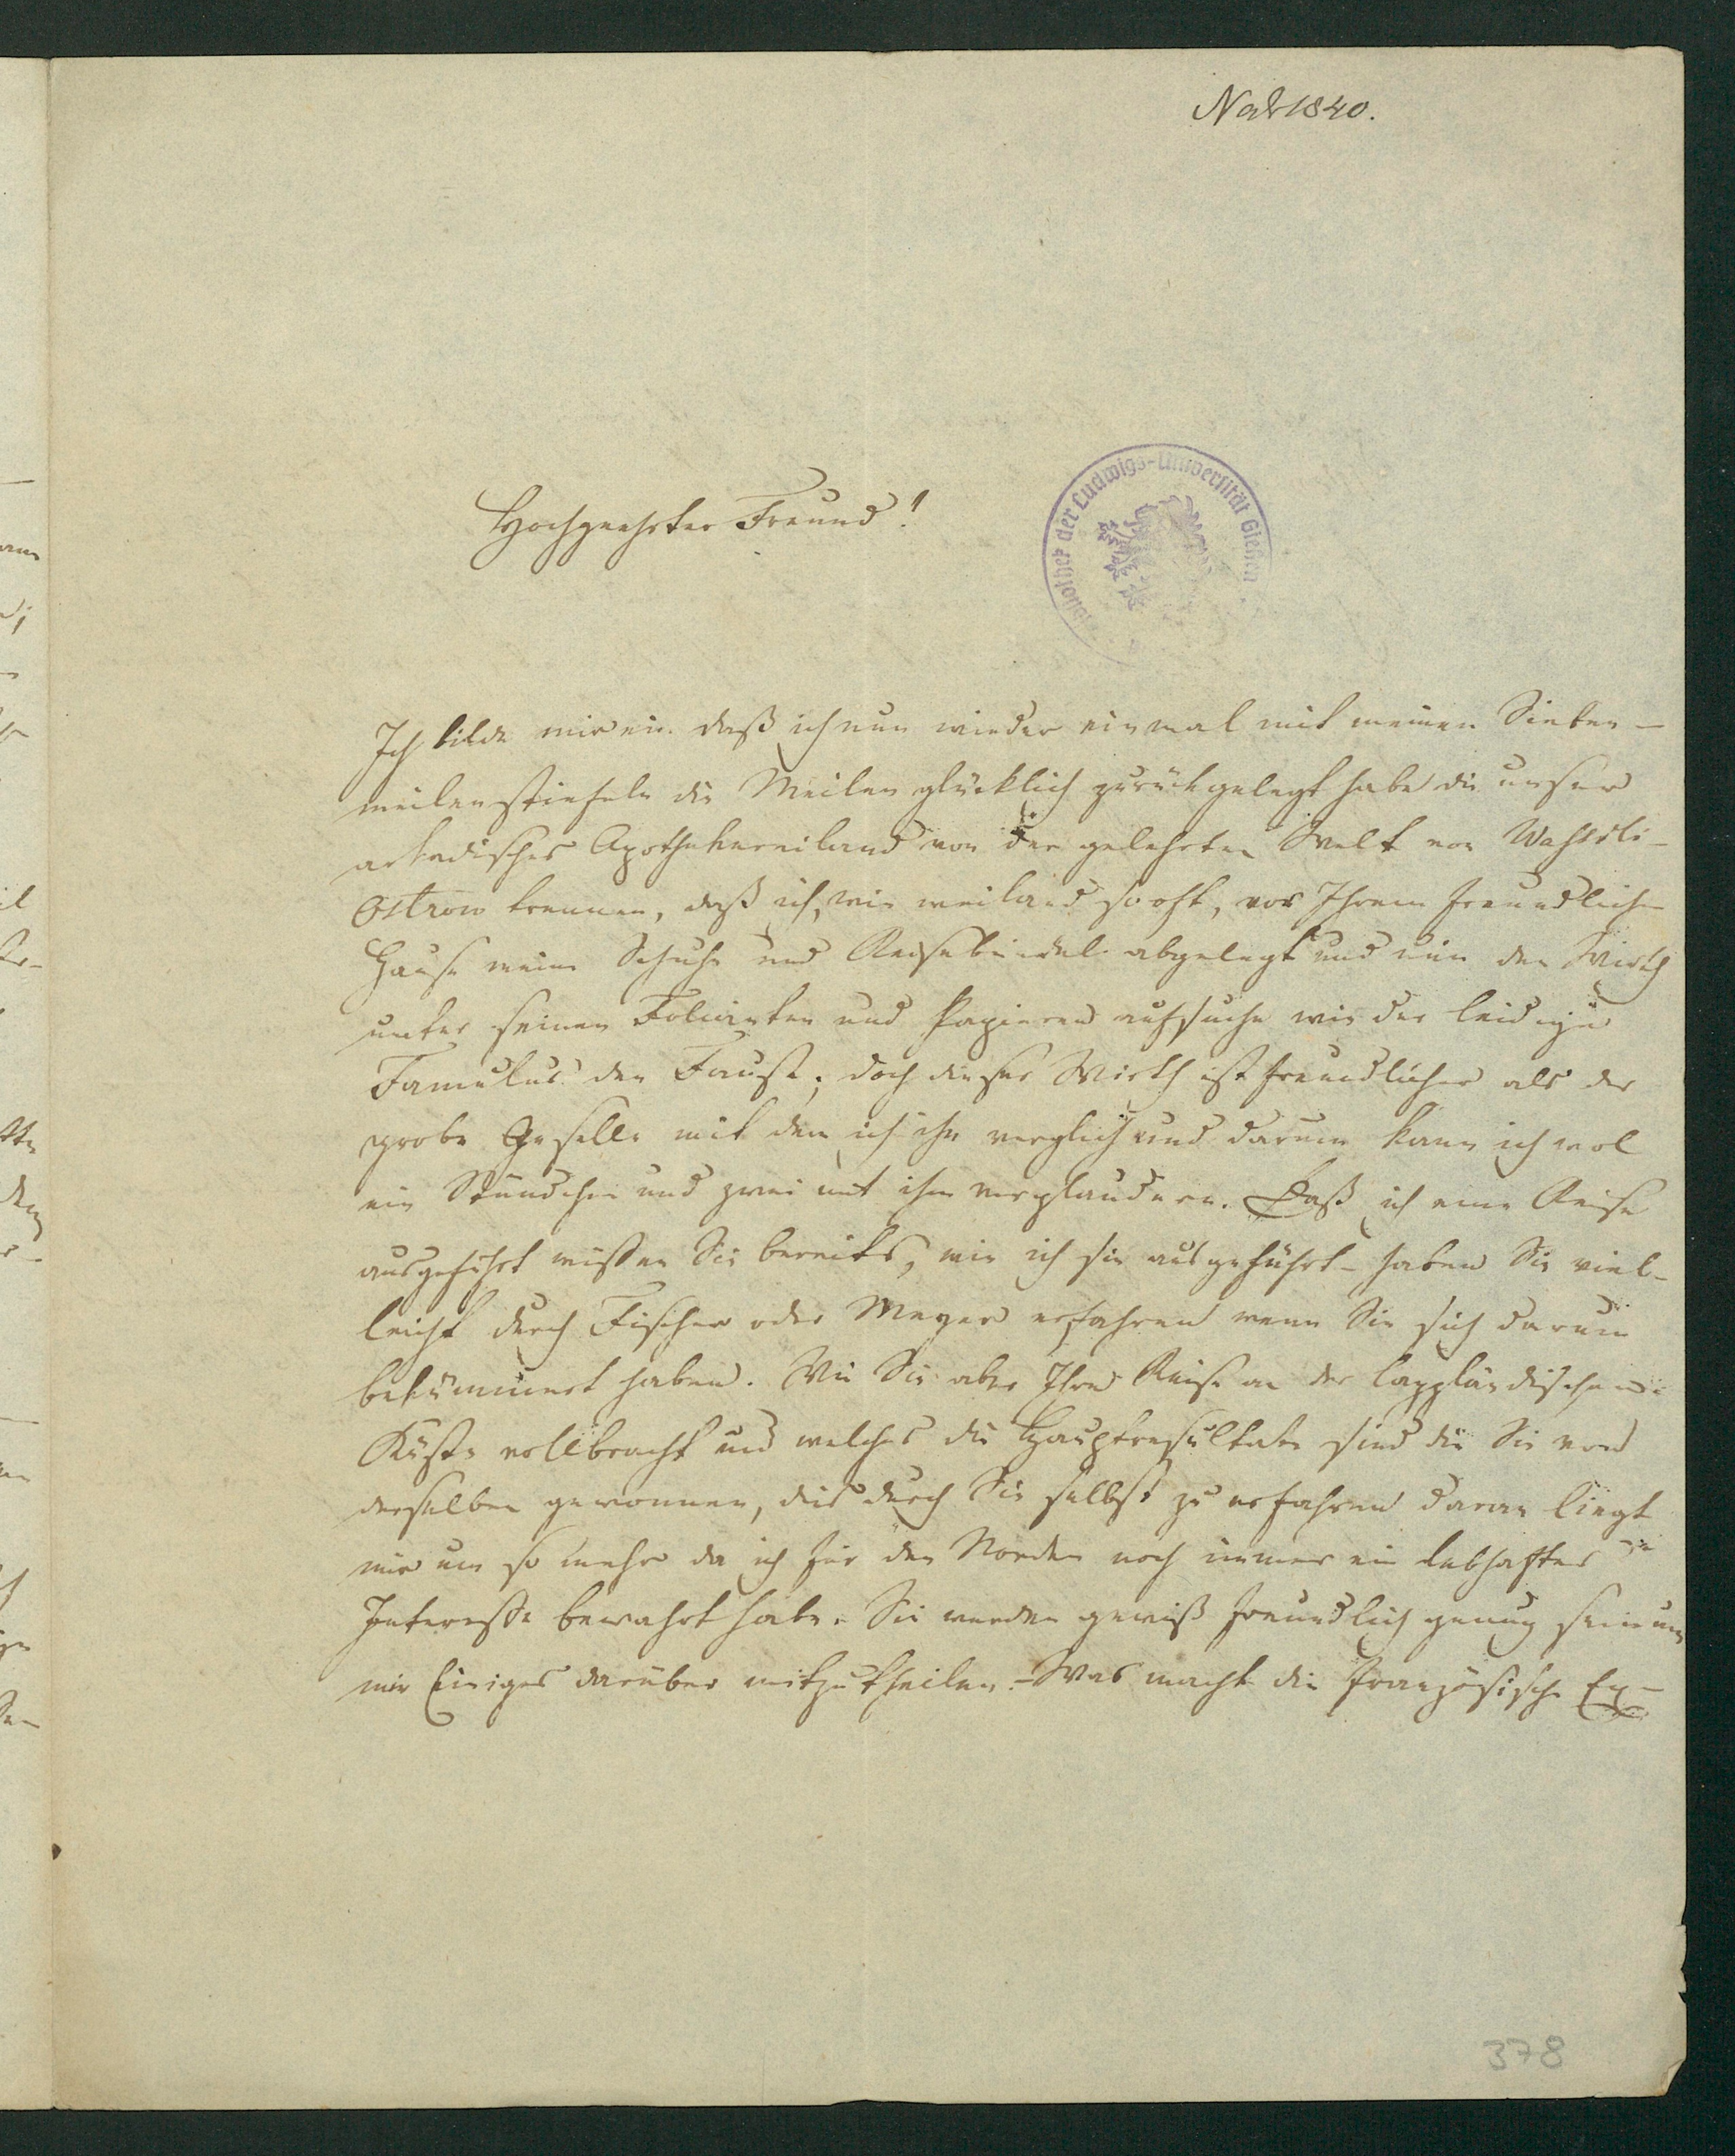 Nov 1840.
Bibliothek der Ludwigs-Universität Gießen
Hochgeehrter Freund!
Ich bilde mir ein daß ich nun wieder einmal mit meinen Sieben-
meilenstiefeln die Meilen glücklich zurückgelegt habe die unser
arkadisches Apothekereiland von der gelehrten Welt von Wassili-
Ostrow trennen, daß ich, wie weiland so oft, vor Ihrem freundlichen
Hause meine Schuhe und Reisebündel abgelegt und nun den Wirth
unter seinen Folianten und Papieren aufsuche wie der leidige
Famulus den Faust; doch dieser Wirth ist freundlicher als der
grobe Geselle mit dem ich ihn verglich und darum kann ich wol
ein Stündchen und zwei mit ihm verplaudern. Daß ich eine Reise
ausgeführt wissen Sie bereits, wie ich sie ausgeführt haben Sie viel-
leicht durch Fischer oder Meyer erfahren wenn Sie sich darum
bekümmert haben. Wie Sie aber Ihre Reise an der lappländischen
Küste vollbracht und welches die Hauptresultate sind die Sie von
derselben gewonnen, dies durch Sie selbst zu erfahren daran liegt
mir um so mehr da ich für den Norden noch immer ein lebhaftes
Interesse bewahrt habe. Sie werden gewiß freundlich genug sein um
mir Einiges darüber mitzutheilen. – Was macht die französische Ex-
378